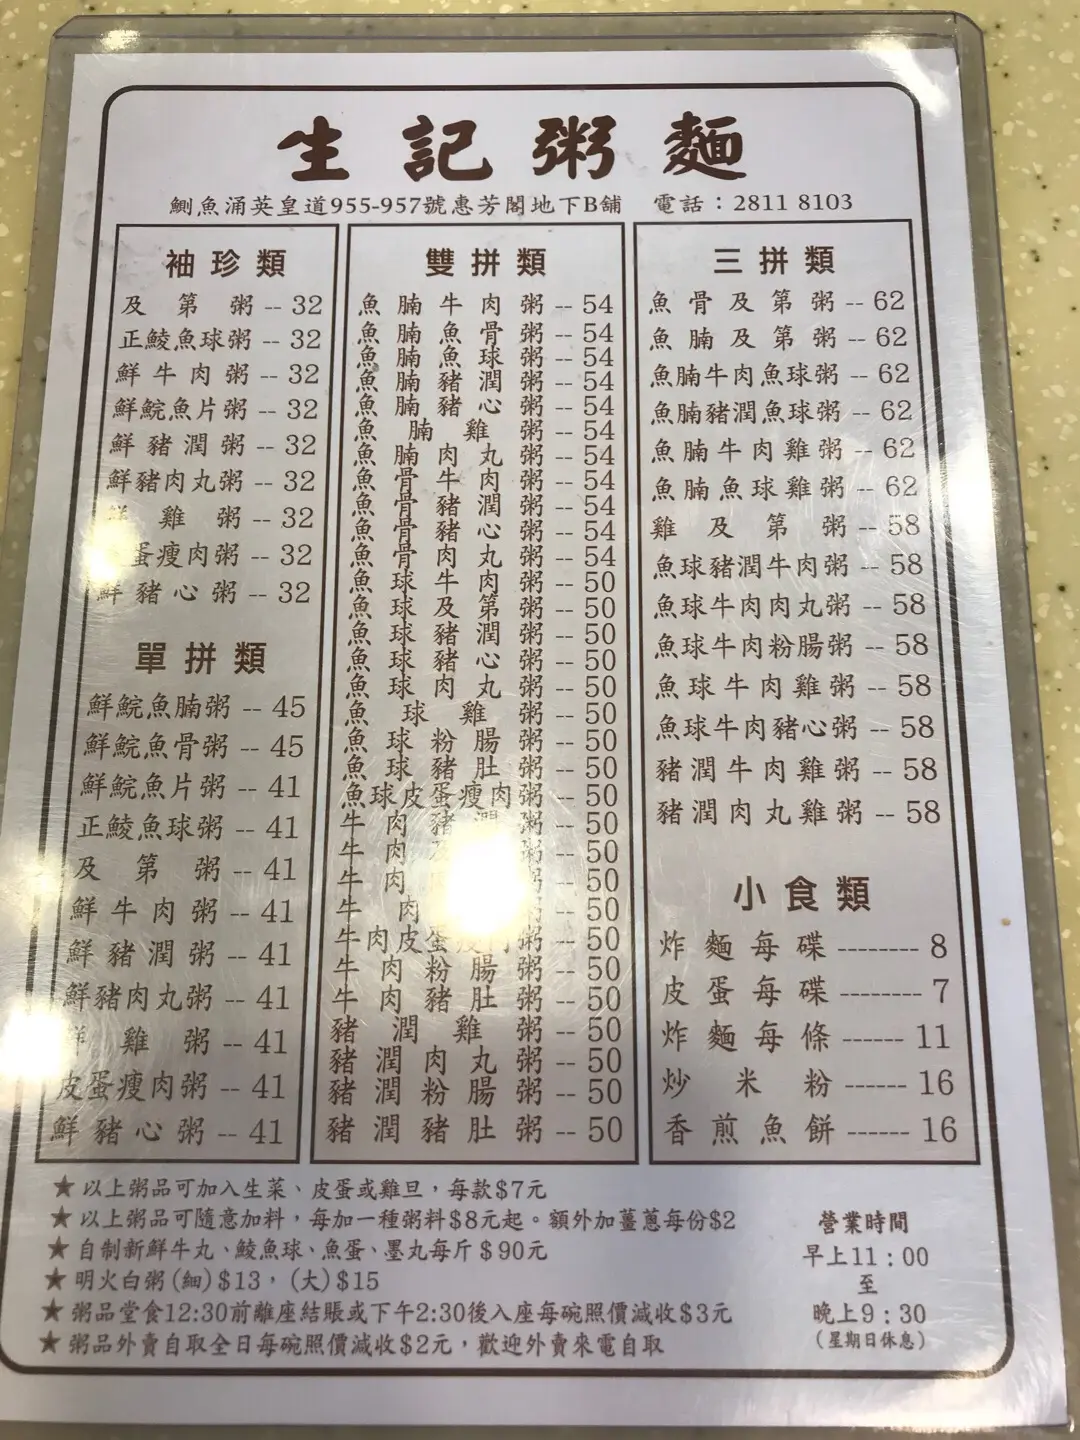 生記粥麵
鰂魚涌英皇道955-957號惠芳閣地下B舖 電話：2811 8103
袖珍類
及第粥 -- 32
正鯪魚球粥 -- 32
鮮牛肉粥 -- 32
鮮鯇魚片粥 -- 32
鮮豬潤粥 -- 32
鮮豬肉丸粥 -- 32
雞粥 -- 32
蛋瘦肉粥 -- 32
鮮豬心粥 -- 32
單拼類
鮮鯇魚腩粥 -- 45
鮮鯇魚骨粥 -- 45
鮮鯇魚片粥 -- 41
正鯪魚球粥 -- 41
及第粥 -- 41
鮮牛肉粥 -- 41
鮮豬潤粥 -- 41
鮮豬肉丸粥 -- 41
鮮雞粥 -- 41
皮蛋瘦肉粥 -- 41
鮮豬心粥 -- 41
雙拼類
魚腩牛肉粥 -- 54
魚腩魚骨粥 -- 54
魚腩魚球粥 -- 54
魚腩豬潤粥 -- 54
魚腩豬心粥 -- 54
魚腩雞粥 -- 54
魚腩肉丸粥 -- 54
魚骨牛肉粥 -- 54
魚骨豬潤粥 -- 54
魚骨豬心粥 -- 54
魚骨肉丸粥 -- 54
魚球牛肉粥 -- 50
魚球及第粥 -- 50
魚球豬潤粥 -- 50
魚球豬心粥 -- 50
魚球肉丸粥 -- 50
魚球雞粥 -- 50
魚球粉腸粥 -- 50
魚球豬肚粥 -- 50
魚球皮蛋瘦肉粥 -- 50
牛肉豬潤粥 -- 50
牛肉 粥 -- 50
牛肉 -- 50
牛肉 -- 50
牛肉皮蛋瘦肉粥 -- 50
牛肉粉腸粥 -- 50
牛肉豬肚粥 -- 50
豬潤雞粥 -- 50
豬潤肉丸粥 -- 50
豬潤粉腸粥 -- 50
豬潤豬肚粥 -- 50
三拼類
魚骨及第粥 -- 62
魚腩及第粥 -- 62
魚腩牛肉魚球粥 -- 62
魚腩豬潤魚球粥 -- 62
魚腩牛肉雞粥 -- 62
魚腩魚球雞粥 -- 62
雞及第粥 -- 58
魚球豬潤牛肉粥 -- 58
魚球牛肉肉丸粥 -- 58
魚球牛肉粉腸粥 -- 58
魚球牛肉雞粥 -- 58
魚球牛肉豬心粥 -- 58
豬潤牛肉雞粥 -- 58
豬潤肉丸雞粥 -- 58
小食類
炸麵每碟 -------- 8
皮蛋每碟 -------- 7
炸麵每條 ------ 11
炒米粉 ------ 16
香煎魚餅 ------ 16
★以上粥品可加入生菜、皮蛋或雞旦，每款$7元
★以上粥品可隨意加料，每加一種粥料$8元起。額外加薑蔥每份$2
★自制新鮮牛丸、鯪魚球、魚蛋、墨丸每斤$90元
★明火白粥(細)$13，(大)$15
★粥品堂食12:30前離座結賬或下午2:30後入座每碗照價減收$3元
★粥品外賣自取全日每碗照價減收$2元，歡迎外賣來電自取
營業時間
早上11：00
至
晚上9：30
(星期日休息)